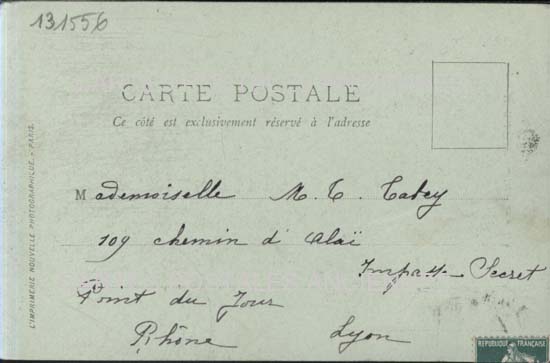 131556
CARTE POSTALE
Ce côté est exclusivement réservé à l'adresse
L'IMPRIMERIE NOUVELLE PHOTOGRAPHIQUE. - PARIS.
Mademoiselle M. T. Tabey
109 chemin d'Alaï
Secret
Point du Jour
Rhône Lyon
REPUBLIQUE FRANÇAISE